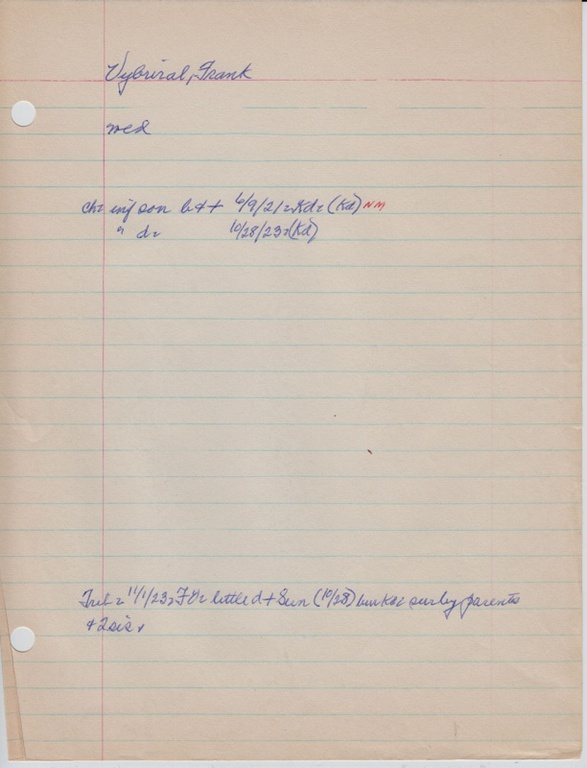 Vybiral, Frank
med
ch= inf son b&+ 6/9/21=Kd= (Kd) NM
" d= 10/28/23=(Kd)
Trib= 11/1/23= FV= little d + Sun (10/28) bur Kd= sur by parents
& 2 sis.